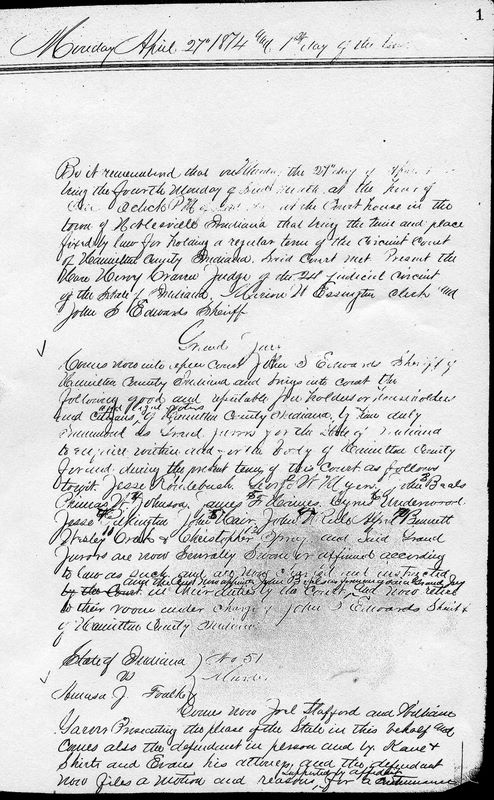 1
Monday April 27th 1874 and 1st day of the
Be it remembered that on Monday the 27th day of April
being the fourth Monday of said month at the hour of
One Oclock P.M. at the Court house in the
town of Noblesville Indiana that being the time and place
fixed by law for holding a regular term of the Circuit Court
of Hamilton County Indiana, Said Court met Present the
Hon Henry Craven Judge of the judicial circuit
of the State of Indiana, W Essington clerk and
John S Edwards Sheriff
Grand Jury
Comes now into open Court John S Edwards Sheriff of
Hamilton County Indiana and brings into court the
following good and reputable freeholders or householders
and citizens, and legal voters of Hamilton County Indiana, by law duly
summoned as Grand jurors for the State of Indiana
to enquire within and for the body of Hamilton County
for and during the present term of this Court as follows
towit. Jesse George W Myers, John Beals
W Johnson, James Haines, Cyrus Underwood
Jesse Pilkington John Hair, John W Bennett
Wesley & Christopher and Said Grand
jurors are now Severally Sworn or affirmed according
to law as such and are now charged and instructed
by the Court in their duties by the Court, and the Court now appoints John Beals as foreman of said Grand Jury and now retire
to their room under charge of John S Edwards Sheriff
of Hamilton County Indiana
State of Indiana } No. 51
vs } Murder
J. }
Comes now Joel Stafford and William
Garver Prosecuting the pleas of the State in this behalf and
Comes also the defendant in person and by Kane &
Shirts and Evans his attorneys, and the defendant
now files a motion and reasons, supported by affidavit for a continuance